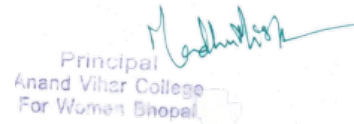 Principal
Anand Vihar College
For Women Bhopal